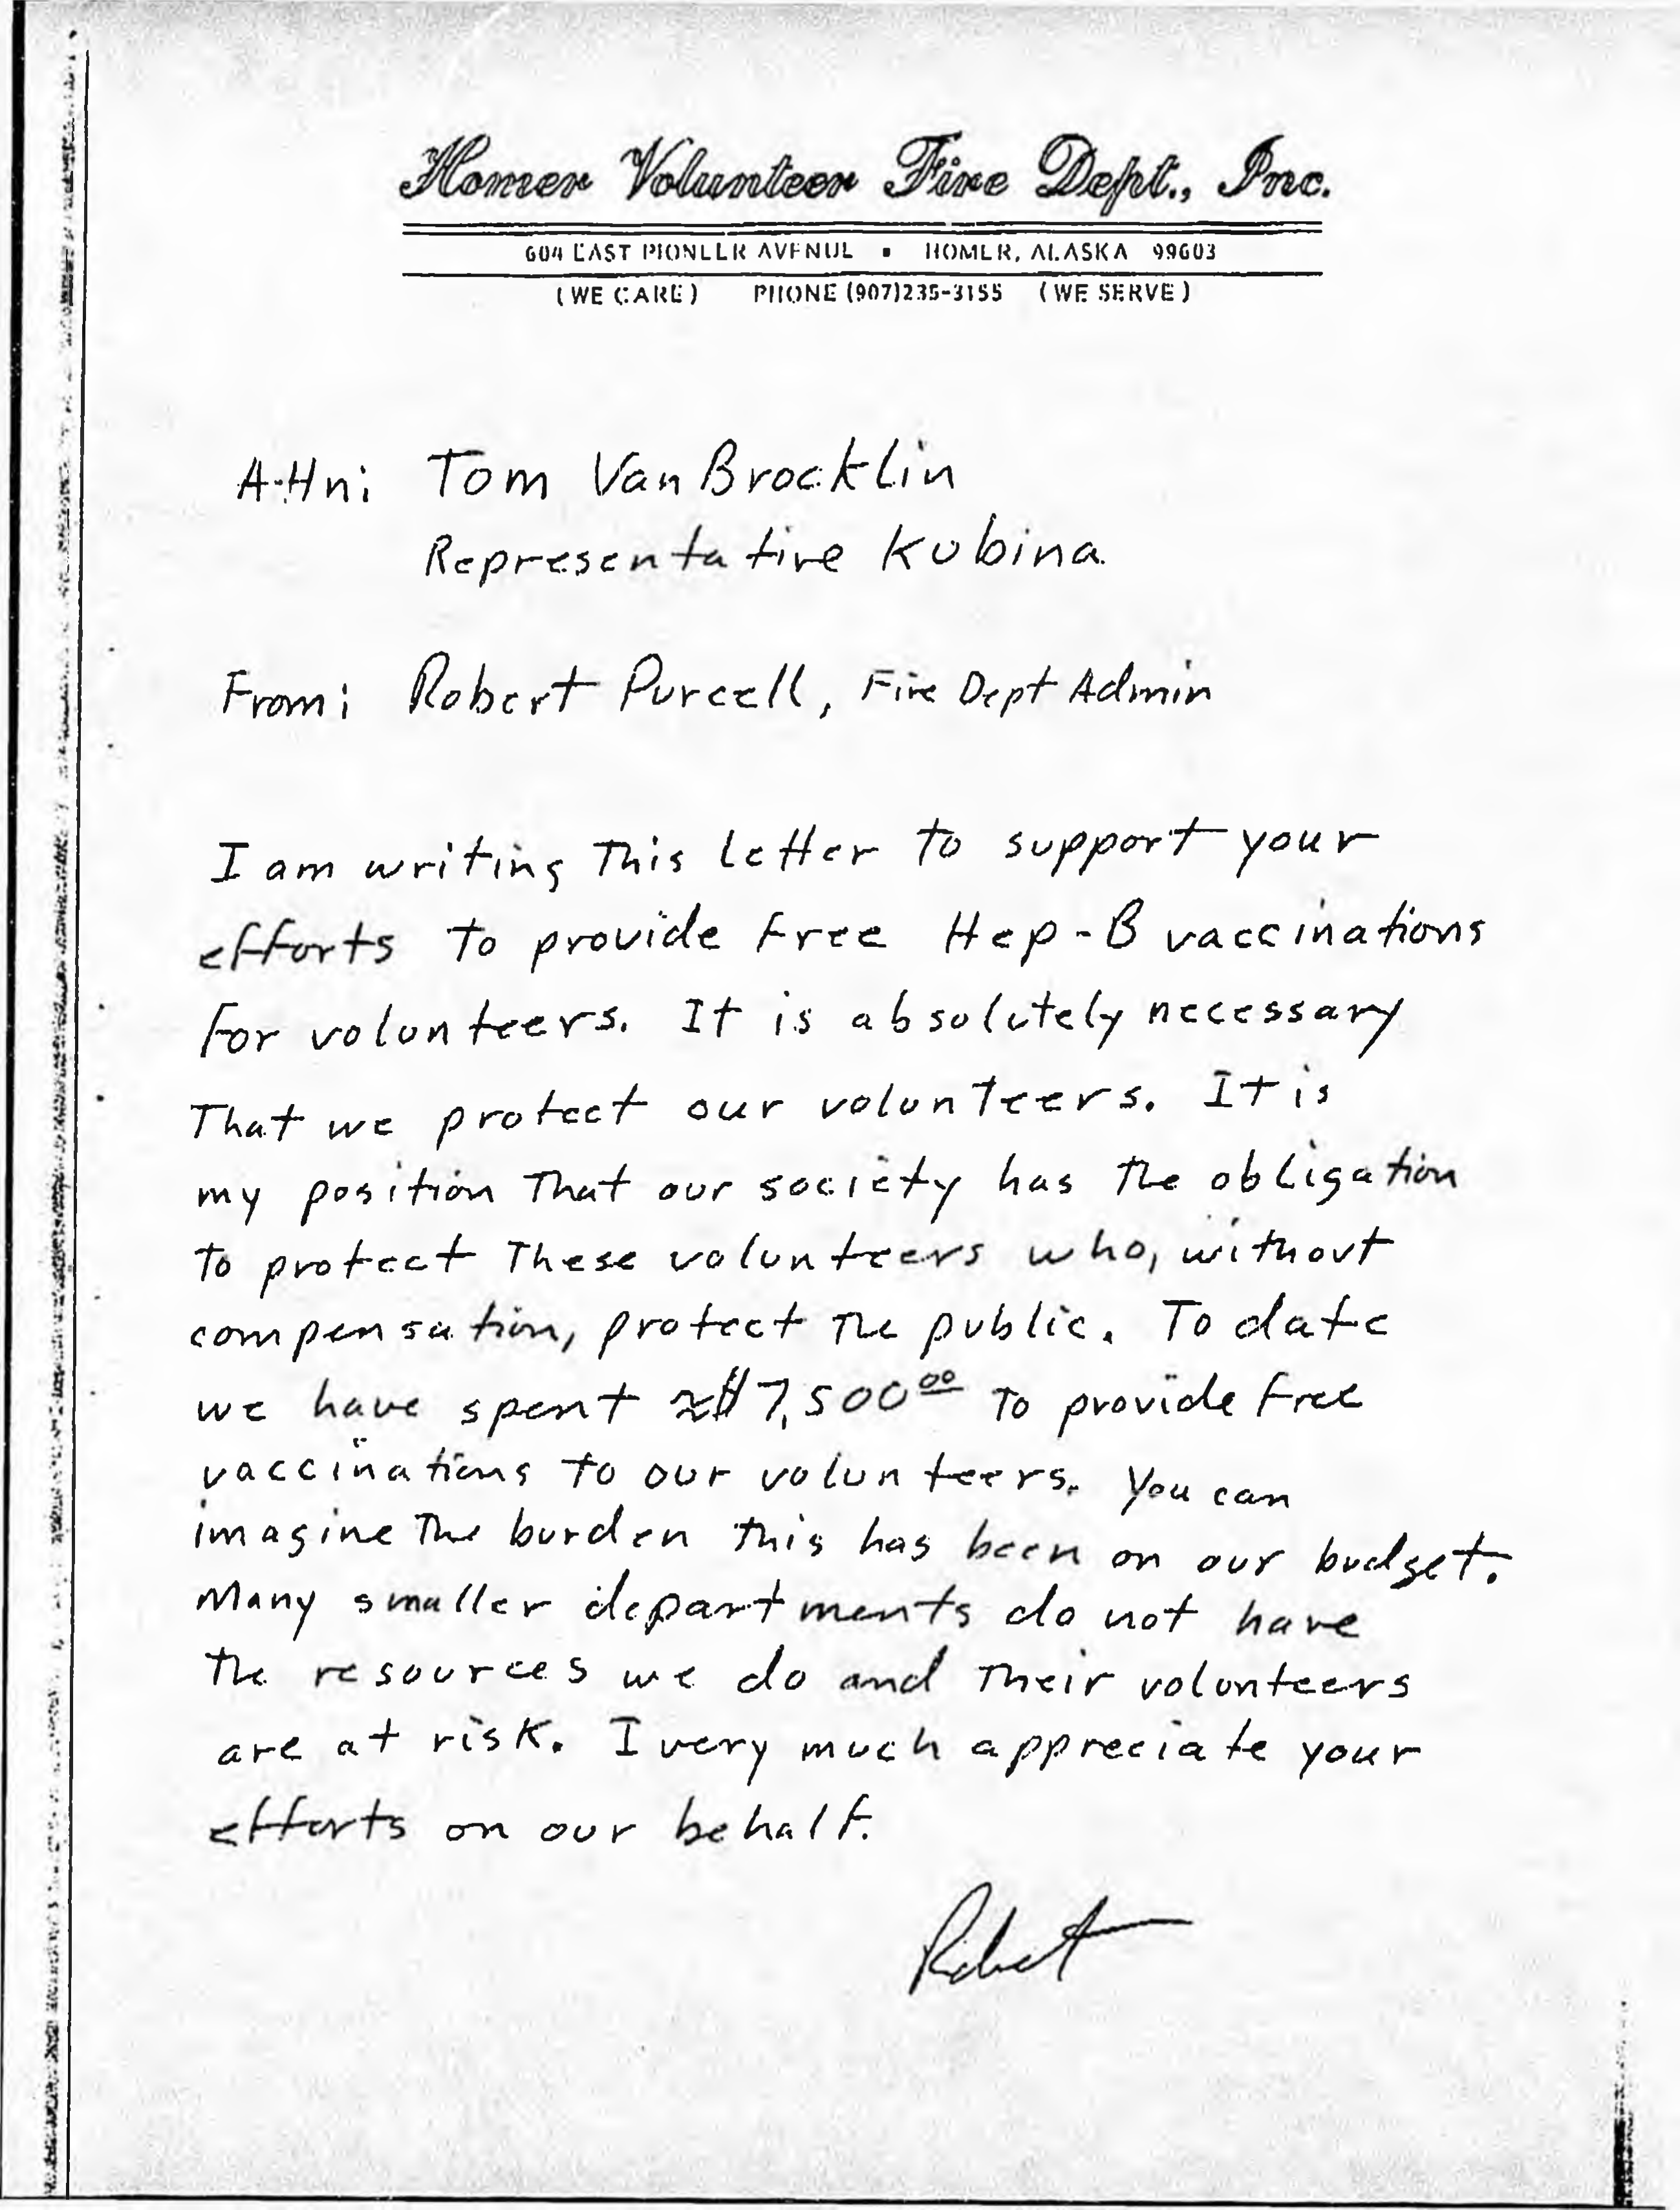 Homer Volunteer Fire Dept., Inc.
604 EAST PIONEER AVENUE • HOMER, ALASKA 99603
(WE CARE) PHONE (907)235-3155 (WE SERVE)
Attn: Tom VanBrocklin
Representative Kubina
From: Robert Purcell, Fire Dept Admin
I am writing This letter To support your
efforts To provide free Hep-B vaccinations
for volunteers. It is absolutely necessary
That we protect our volunteers. It is
my position That our society has The obligation
To protect These volunteers who, without
compensation, protect The public. To date
we have spent ≈$7,500.00 To provide free
vaccinations To our volunteers. You can
imagine The burden This has been on our budget.
Many smaller departments do not have
The resources we do and Their volunteers
are at risk. I very much appreciate your
efforts on our behalf.
Robert